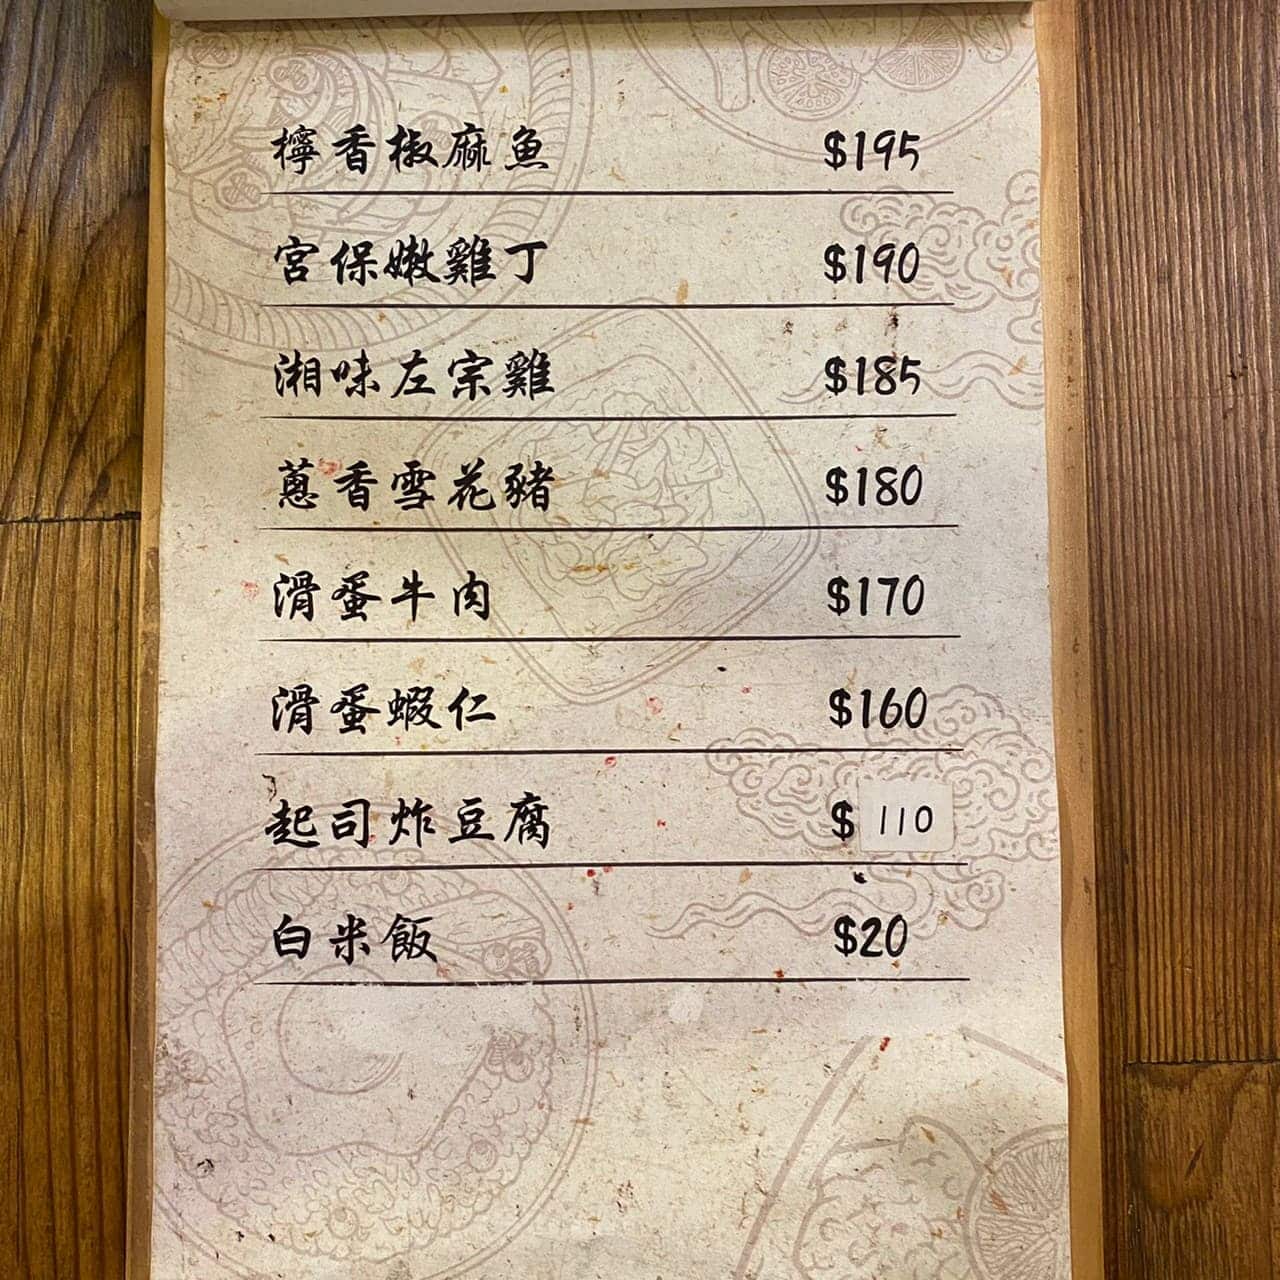 檸香椒麻魚 $195
宮保嫩雞丁 $190
湘味左宗雞 $185
蔥香雪花豬 $180
滑蛋牛肉 $170
滑蛋蝦仁 $160
起司炸豆腐 $110
白米飯 $20